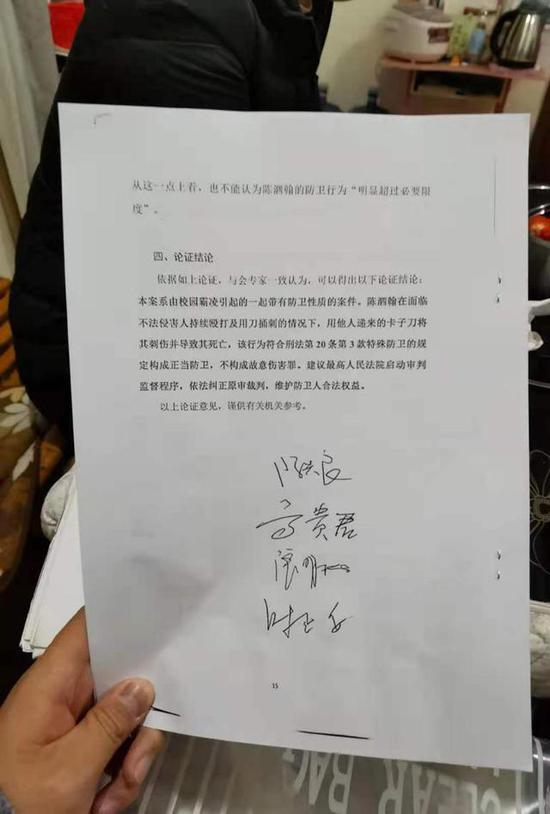 从这一点上看，也不能认为陈泗翰的防卫行为“明显超过必要限
度”。
四、论证结论
依据如上论证，与会专家一致认为，可以得出以下论证结论：
本案系由校园霸凌引起的一起带有防卫性质的案件。陈泗翰在面临
不法侵害人持续殴打及用刀捅刺的情况下，用他人递来的卡子刀将
其刺伤并导致其死亡，该行为符合刑法第 20 条第 3 款特殊防卫的规
定构成正当防卫，不构成故意伤害罪。建议最高人民法院启动审判
监督程序，依法纠正原审裁判，维护防卫人合法权益。
以上论证意见，谨供有关机关参考。
高贵君
15
CLEAR BAG